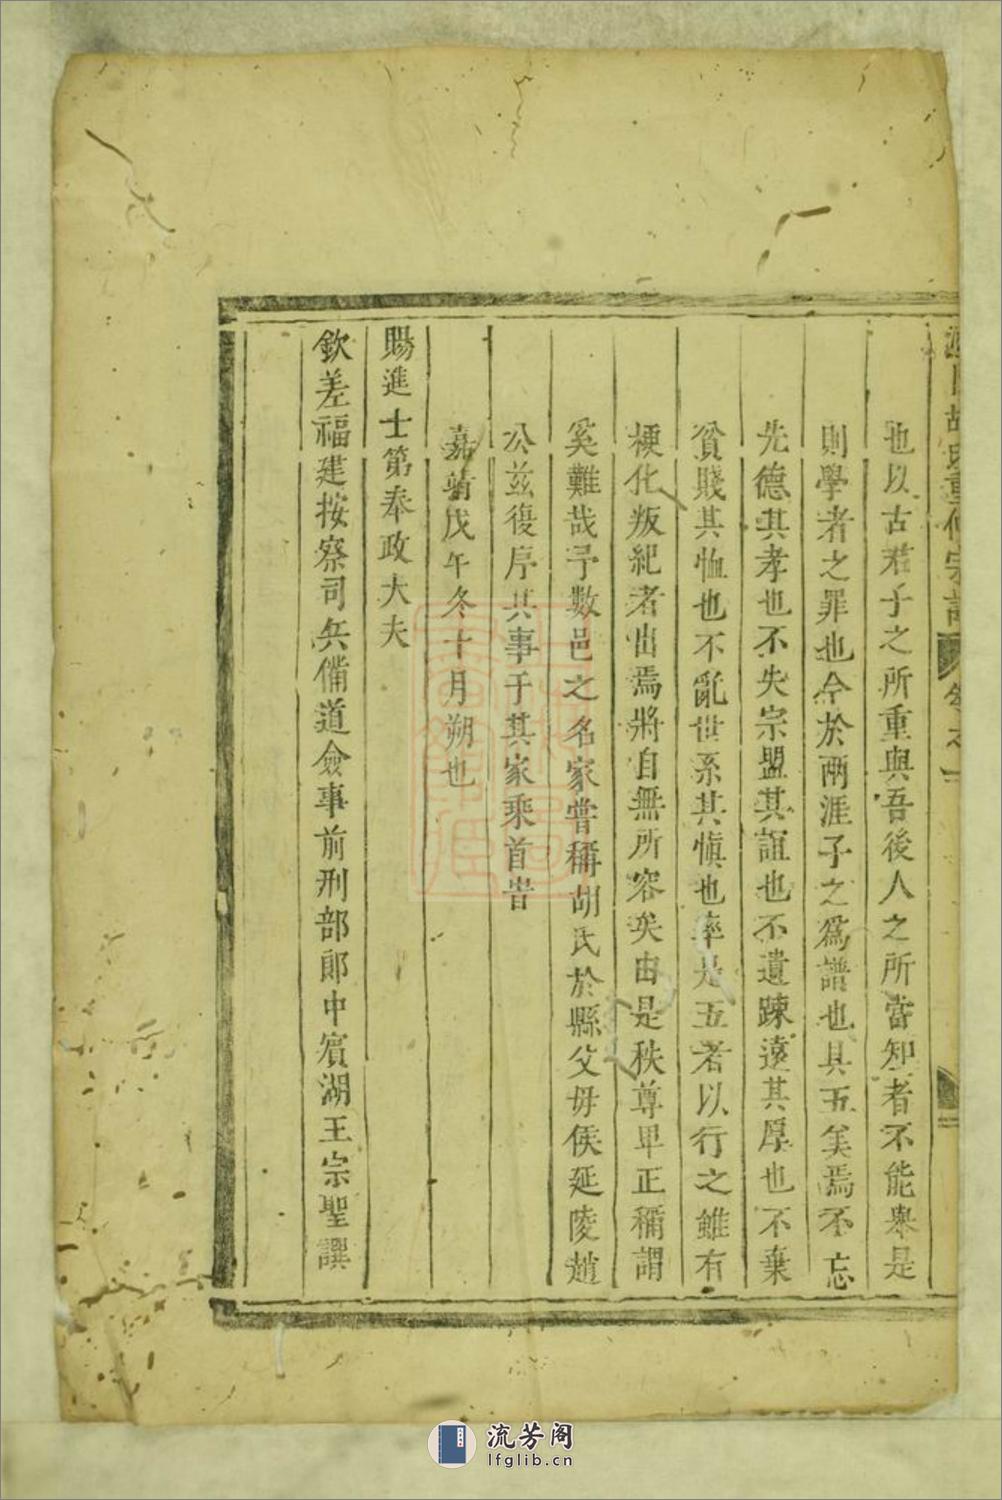 胡氏重修宗譜 卷之一
也以古君子之所重與吾後人之所當知者不能舉是
則學者之罪也今於兩涯子之爲譜也具五矣焉不忘
先德其孝也不失宗盟其誼也不遺踈遠其厚也不棄
貧賤其恤也不亂世系其愼也率是五者以行之雖有
梗化叛紀者出焉將自無所容矣由是秩尊卑正稱謂
奚難哉予數邑之名家嘗稱胡氏於縣父母侯延陵趙
公茲復序其事于其家乘首皆
嘉靖戊午冬十月朔也
賜進士第奉政大夫
欽差福建按察司兵備道僉事前刑部郎中賓湖王宗聖譔
流芳阁
lfglib.cn